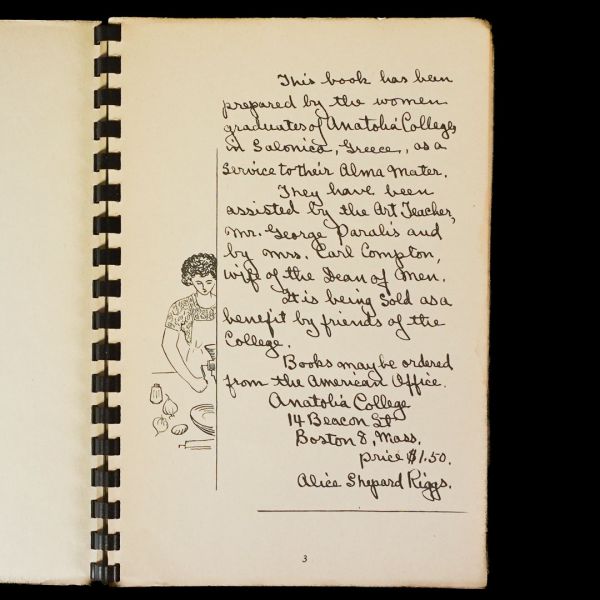 This book has been
prepared by the women
graduates of Anatolia College,
in Salonica, Greece, as a
service to their Alma Mater.
They have been
assisted by the Art Teacher,
Mr. George Paralis and
by Mrs. Carl Compton,
wife of the Dean of Men.
It is being sold as a
benefit by friends of the
College.
Books may be ordered
from the American Office.
Anatolia College
14 Beacon St
Boston 8, Mass.
Price $1.50.
Alice Shepard Riggs.
3